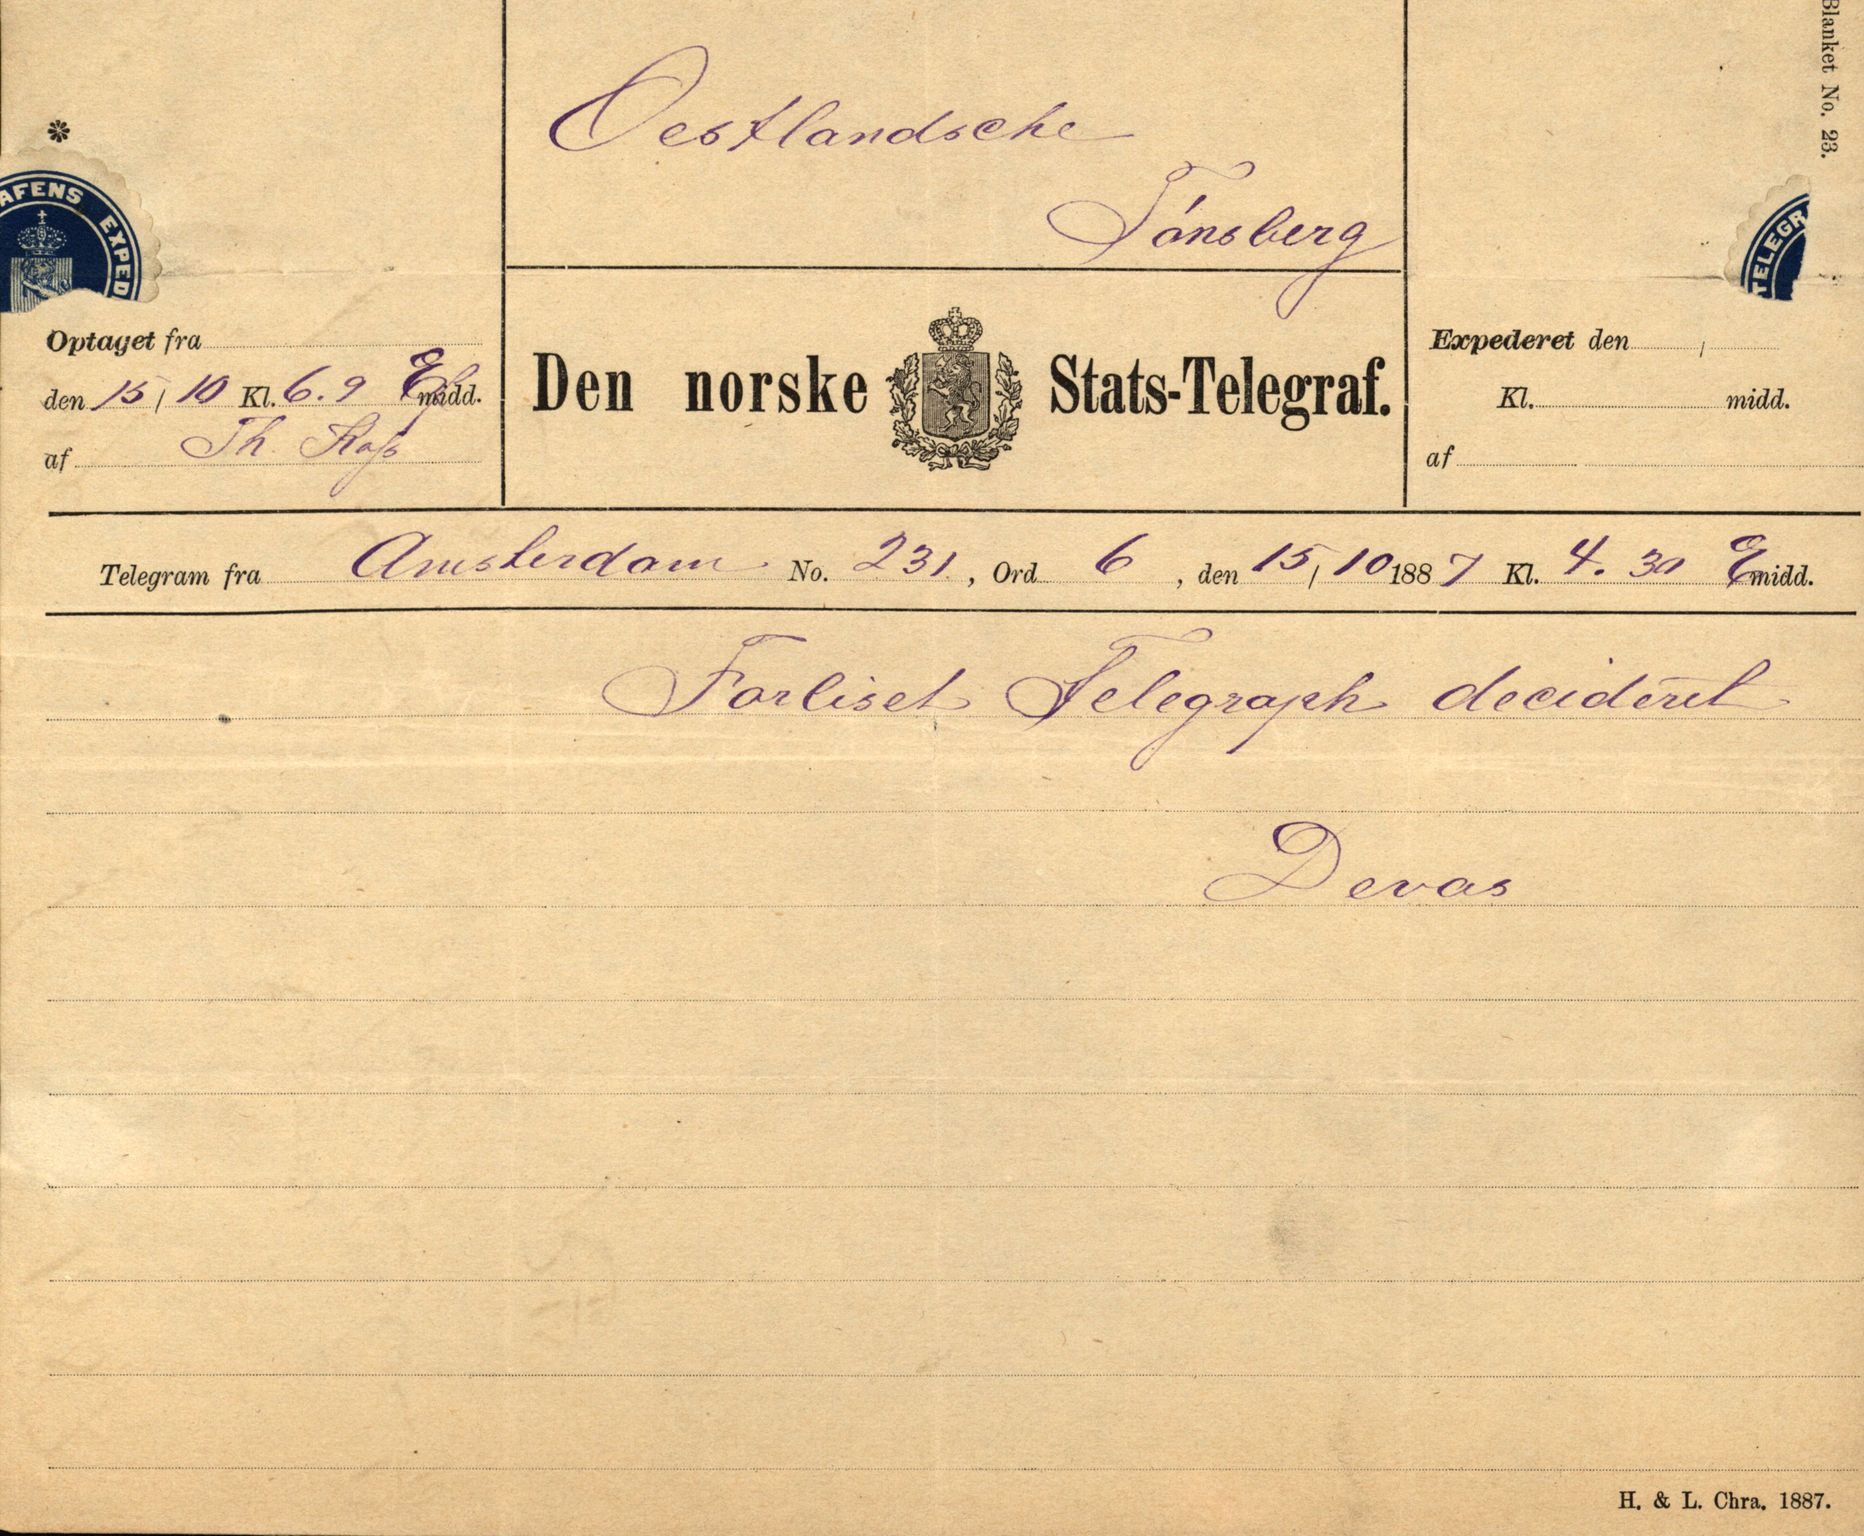 Blanket No. 23.
Oestlandsche
Tónsberg
*
AFENS EXPED
TELEGR
Optaget fra
den 15/10 Kl. 6.9 Emidd.
af Th.
Den norske Stats-Telegraf.
Expederet den /
Kl. midd.
af
Telegram fra Amsterdam No. 231, Ord 6, den 15/10 1887 Kl. 4.30 Emidd.
Forliset Telegraph decideret
Devas
H. & L. Chra. 1887.